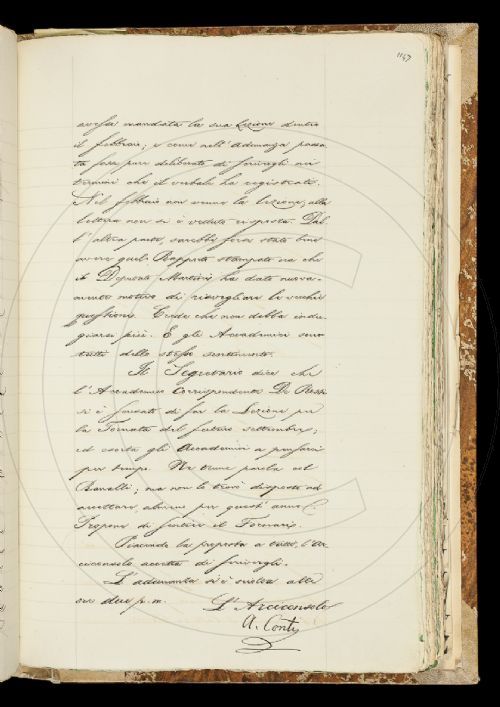 1147
avesse mandata la sua Lezione dentro
il febbraio; e come nell'adunanza passa-
ta fosse pure deliberato di scrivergli nei
termini che il verbale ha registrato.
Nel febbraio non venne la lezione, alla
lettera non si è veduta risposta. Dal-
l'altra parte, sarebbe forse stato bene
avere quel Rapporto stampato ora che
il Deputato Martini ha dato nuova-
mente motivo di risvegliare la vecchia
quistione. Crede che non debba indu-
giarsi più. E gli Accademici sono
tutti dello stesso sentimento.
Il Segretario dice che
l'Accademico Corrispondente De
si è scusato di far la Lezione per
la Tornata del futuro settembre;
ed esorta gli Accademici a pensarci
per tempo. Ne tenne parola col
Ranalli; ma non lo trovò disposto ad
accettare, almeno per quest'anno.
Propone di sentire il Fornari.
Piacendo la proposta a tutti, l'Ar-
ciconsolo accetta di scrivergli.
L'adunanza si è sciolta alle
ore due p.m.
L'Arciconsolo
A. Conti